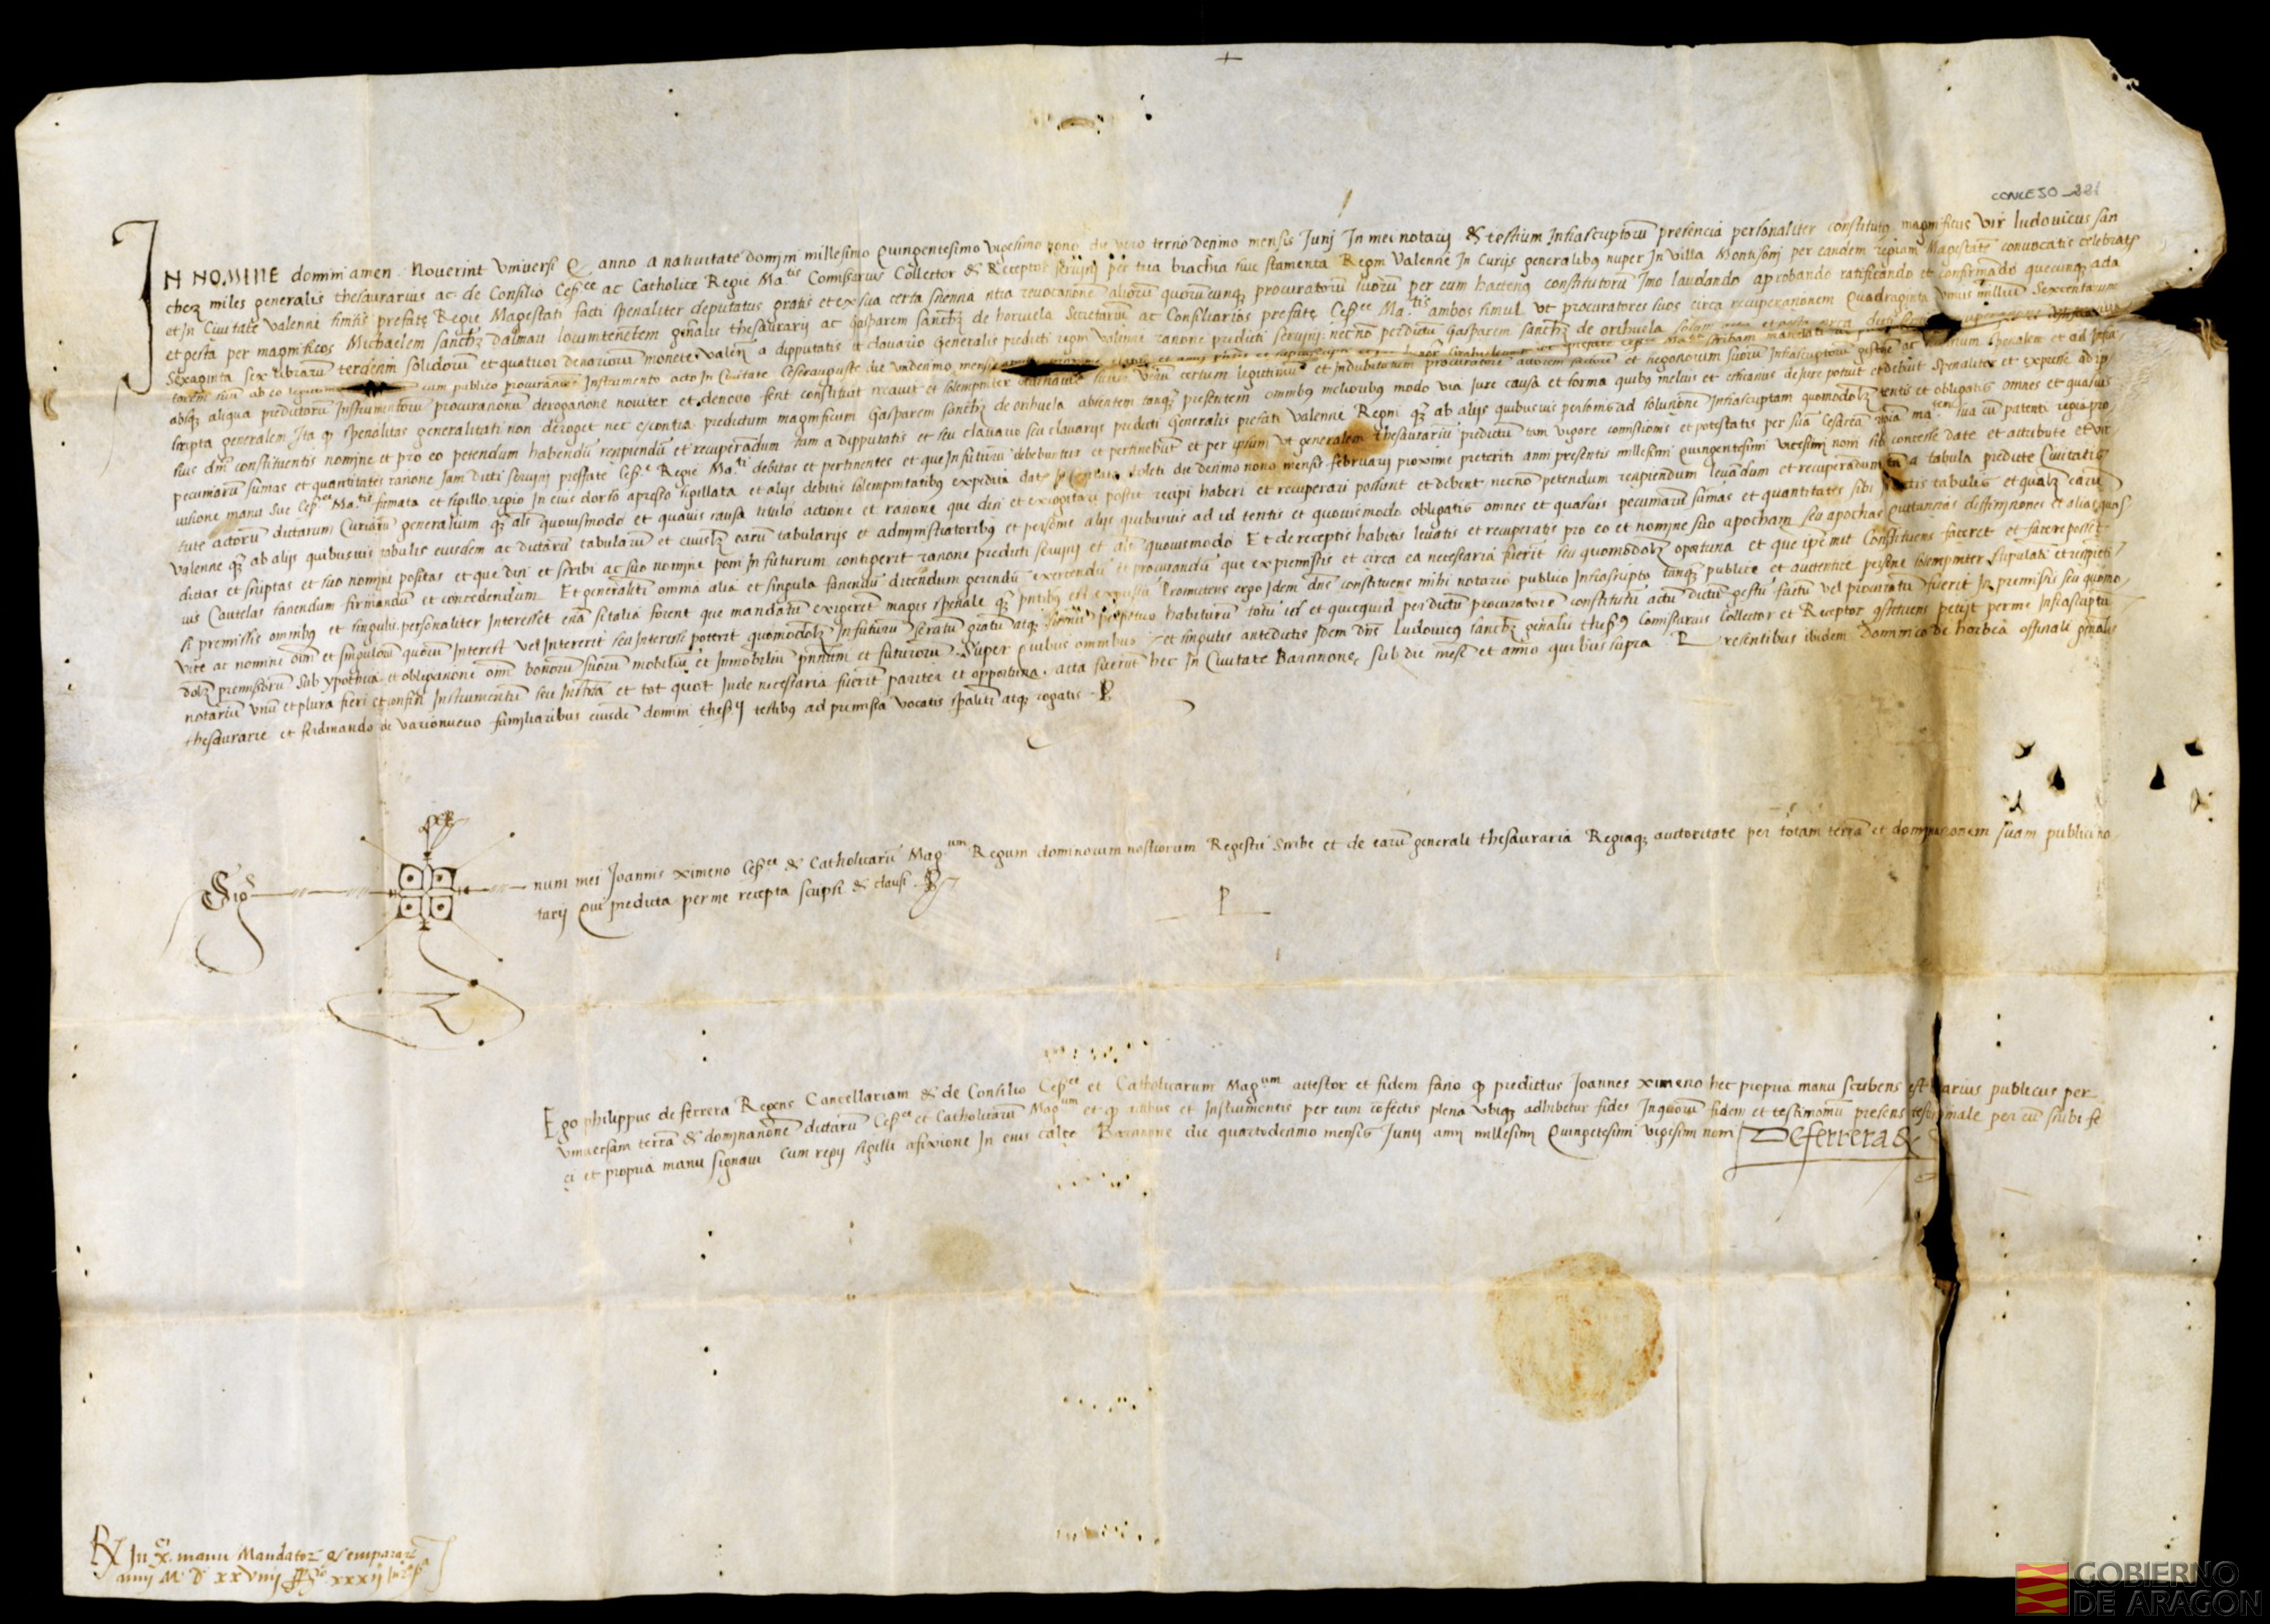 CONCESO_221
IN NOMINE domini amen Noverint universi Q anno a nativitate domini millesimo Quingentesimo vigesimo nono die vero terciodecimo mensis Junij In mei notarij & testium Infrascriptorum presencia personaliter constitutus magnificus vir ludovicus san
chez miles generalis thesaurarius ac de Consilio Ces.ee ac Catholice Regie Ma.tis Comissarius Collector & Receptor servicij per tria brachia sive stamenta Regni Valencie In Curijs generalibus nuper In villa Montissonj per eandem regiam Magestate convocatis celebratis
et In Civitate Valencie finitis prefate Regie Magestati facti specialiter deputatus gratis et ex sua certa sciencia citra revocacione aliorum quorumcunq procuratorum suorum per eum hactenus constitutorum Imo laudando aprobando ratificando et confirmado quecunq acta
et gesta per magnificos Michaelem Sanchz Dalmau locumtenetem genalis thesaurarij ac Gasparem Sanchz de horiuela Secretarium ac Consiliarios prefate Ces.ee Ma.tis ambos simul ut procuratores suos circa recuperacionem Quadraginta unius millium Sexcentarum
Sexaginta sex librarum terdecim solidorum et quatuor denariorum monete Valen a dipputatis et clavario Generalis predicti regni Valencie racione predicti servicij necno perdictu Gasparem sanchz de orihuela
cum publico procuracionis Instrumento acto In Civitate Cesarauguste die undecimo mensis
absq aliqua predictorum Instrumentorum procuracionum derogacione noviter et denovo fecit constituit creavit et solempniter ordinavit suum verum certum legitimum et Indubitatum procuratore
scripta generalem Ita q specialitas generalitati non deroget nec e contra predictum magnificum Gasparem Sanchz de orihuela absentem tanq presentem omnibus melioribus modo via Jure causa et forma quibus melius et efficacius de Jure potuit et debuit specialiter et expresse ad ip
sius dni constituentis nomine et pro eo petendum habendu recipiendu et recuperadum tam a dipputatis et seu clavario seu clavarijs predicti Generalis prefati Valencie Regni q ab alijs quibusvis personis ad solucione Infrascriptam quomodolz tentis et obligatis omnes et quasvis
pecuniarum sumas et quantitates racione Jam dicti servicij preffate Ces.e Regie Ma.ti debitas et pertinentes et que In futurum debebuntur et pertinebut et per ipsum ut generalem thesaurariu predictu tam vigore comissionis et potestatis per sua Cesarea regia ma.tem sua cu patenti regia pro
visione manu sue Ces.ee Ma.tis firmata et sigillo regio In eius dorso apresso sigillata et alijs debitis solempnitatibus expedita dat In Civitate Toleti die decimo nono mensis februarij proxime preteriti anni presentis millesimi Quingentesimi vicesimi noni sibi concesse date et attribute et vir
tute actorum dictarum Curiarum generalium q als quovismodo et quavis causa titulo actione et racione que dici et exiogitari possit recipi haberi et recuperari possunt et debent necno petendum recipiendum levandum et recuperandum ta a tabula predicte Civitatis
Valencie q ab alijs quibusvis tabulis eiusdem ac dictaru tabularum et cuiuslz earu tabularijs et administratoribus et personis alijs quibusvis ad id tentis et quovismodo obligatis omnes et quasvis pecuniaru sumas et quantitates sibi dictis tabulis et qualz earu
dictas et scriptas et suo nomine positas et que dici et scribi ac suo nomine poni In futurum contigerit racione predicti servicij et als quovismodo Et de receptis habitis levatis et recuperatis pro eo et nomine suo apocham seu apochas Quitancias diffiniciones et alias quas
vis Cautelas faciendum firmandu et concedendum Et generaliter omnia alia et singula faciendu dicendum gerendu exercendu et procurandu que ex premissis et circa ea necessaria fuerit seu quomodolz oportuna et que ipemet Constituens faceret et facere posset
si premissis omnibus et singulis personaliter Interesset etia si talia forent que mandatu exigeret magis speciale q pntibus est expressu Promitens ergo Idem dns constituens mihi notario publico Infrascripto tanq publice et autentice persone solempniter stipulati et recipieti
vice ac nomine oim et singulorum quoru Interest vel Intererit seu Interesse poterit quomodolz In futuru se ratum gratu atq firmu perpetuo habiturum totu id et quicquid per dictu procuratore constitutu actu dictu gestu factu vel procuratu fuerit In premissis seu quomo
dolz premissorum sub ypotheca et obligacione oim bonoru suorum mobiliu et Inmobiliu pntium et futurorum Super Quibus omnibus et singulis antedictis Idem dns ludovicus sanchz genalis thess Comissarius Collector et Receptor constituens petijt per me Infrascriptu
notariu unu et plura fieri et confici Instrumentu seu Instra et tot quot Inde necessaria fuerit pariter et opportuna acta fuerut hec In Civitate Barcinone sub die mese et anno quibus supra Presentibus ibidem Dominico de horbea officiali genalis
thesaurarie et ferdinando de varionuevo familiaribus eiusde domini thesrij testibus ad premissa vocatis spaliter atq rogatis
Sig num mei Joannis ximeno Ces.ee & Catholicaru Mag.um Regum dominorum nostrorum Regestri Scribe et de earu generali thesauraria Regiaq auctoritate per totam terra et dominacionem suam publici no
tarij Qui predicta per me recepta scripsi & clausi
Ego philippus de ferrera Regens Cancellariam & de Consilio Ces.ee et Catholicarum Mag.um attestor et fidem facio q predictus Joannes ximeno hec propria manu scribens est notarius publicus per
universam terra & dominacione dictaru Ces.ee et Catholicaru Mag.um et q actibus et Instrumentis per eum cofectis plena ubiq adhibetur fides In quoru fidem et testimoniu presens testimoniale per eu scribi fe
ci et propria manu signavi Cum regij sigilli afixione In eius calce Barcinone die quartodecimo mensis Junij anni millesimi Quingetesimi vigesimi noni Deferrera
Rx In x manu Mandator et empararu
anni M D xxviiij
GOBIERNO
DE ARAGON